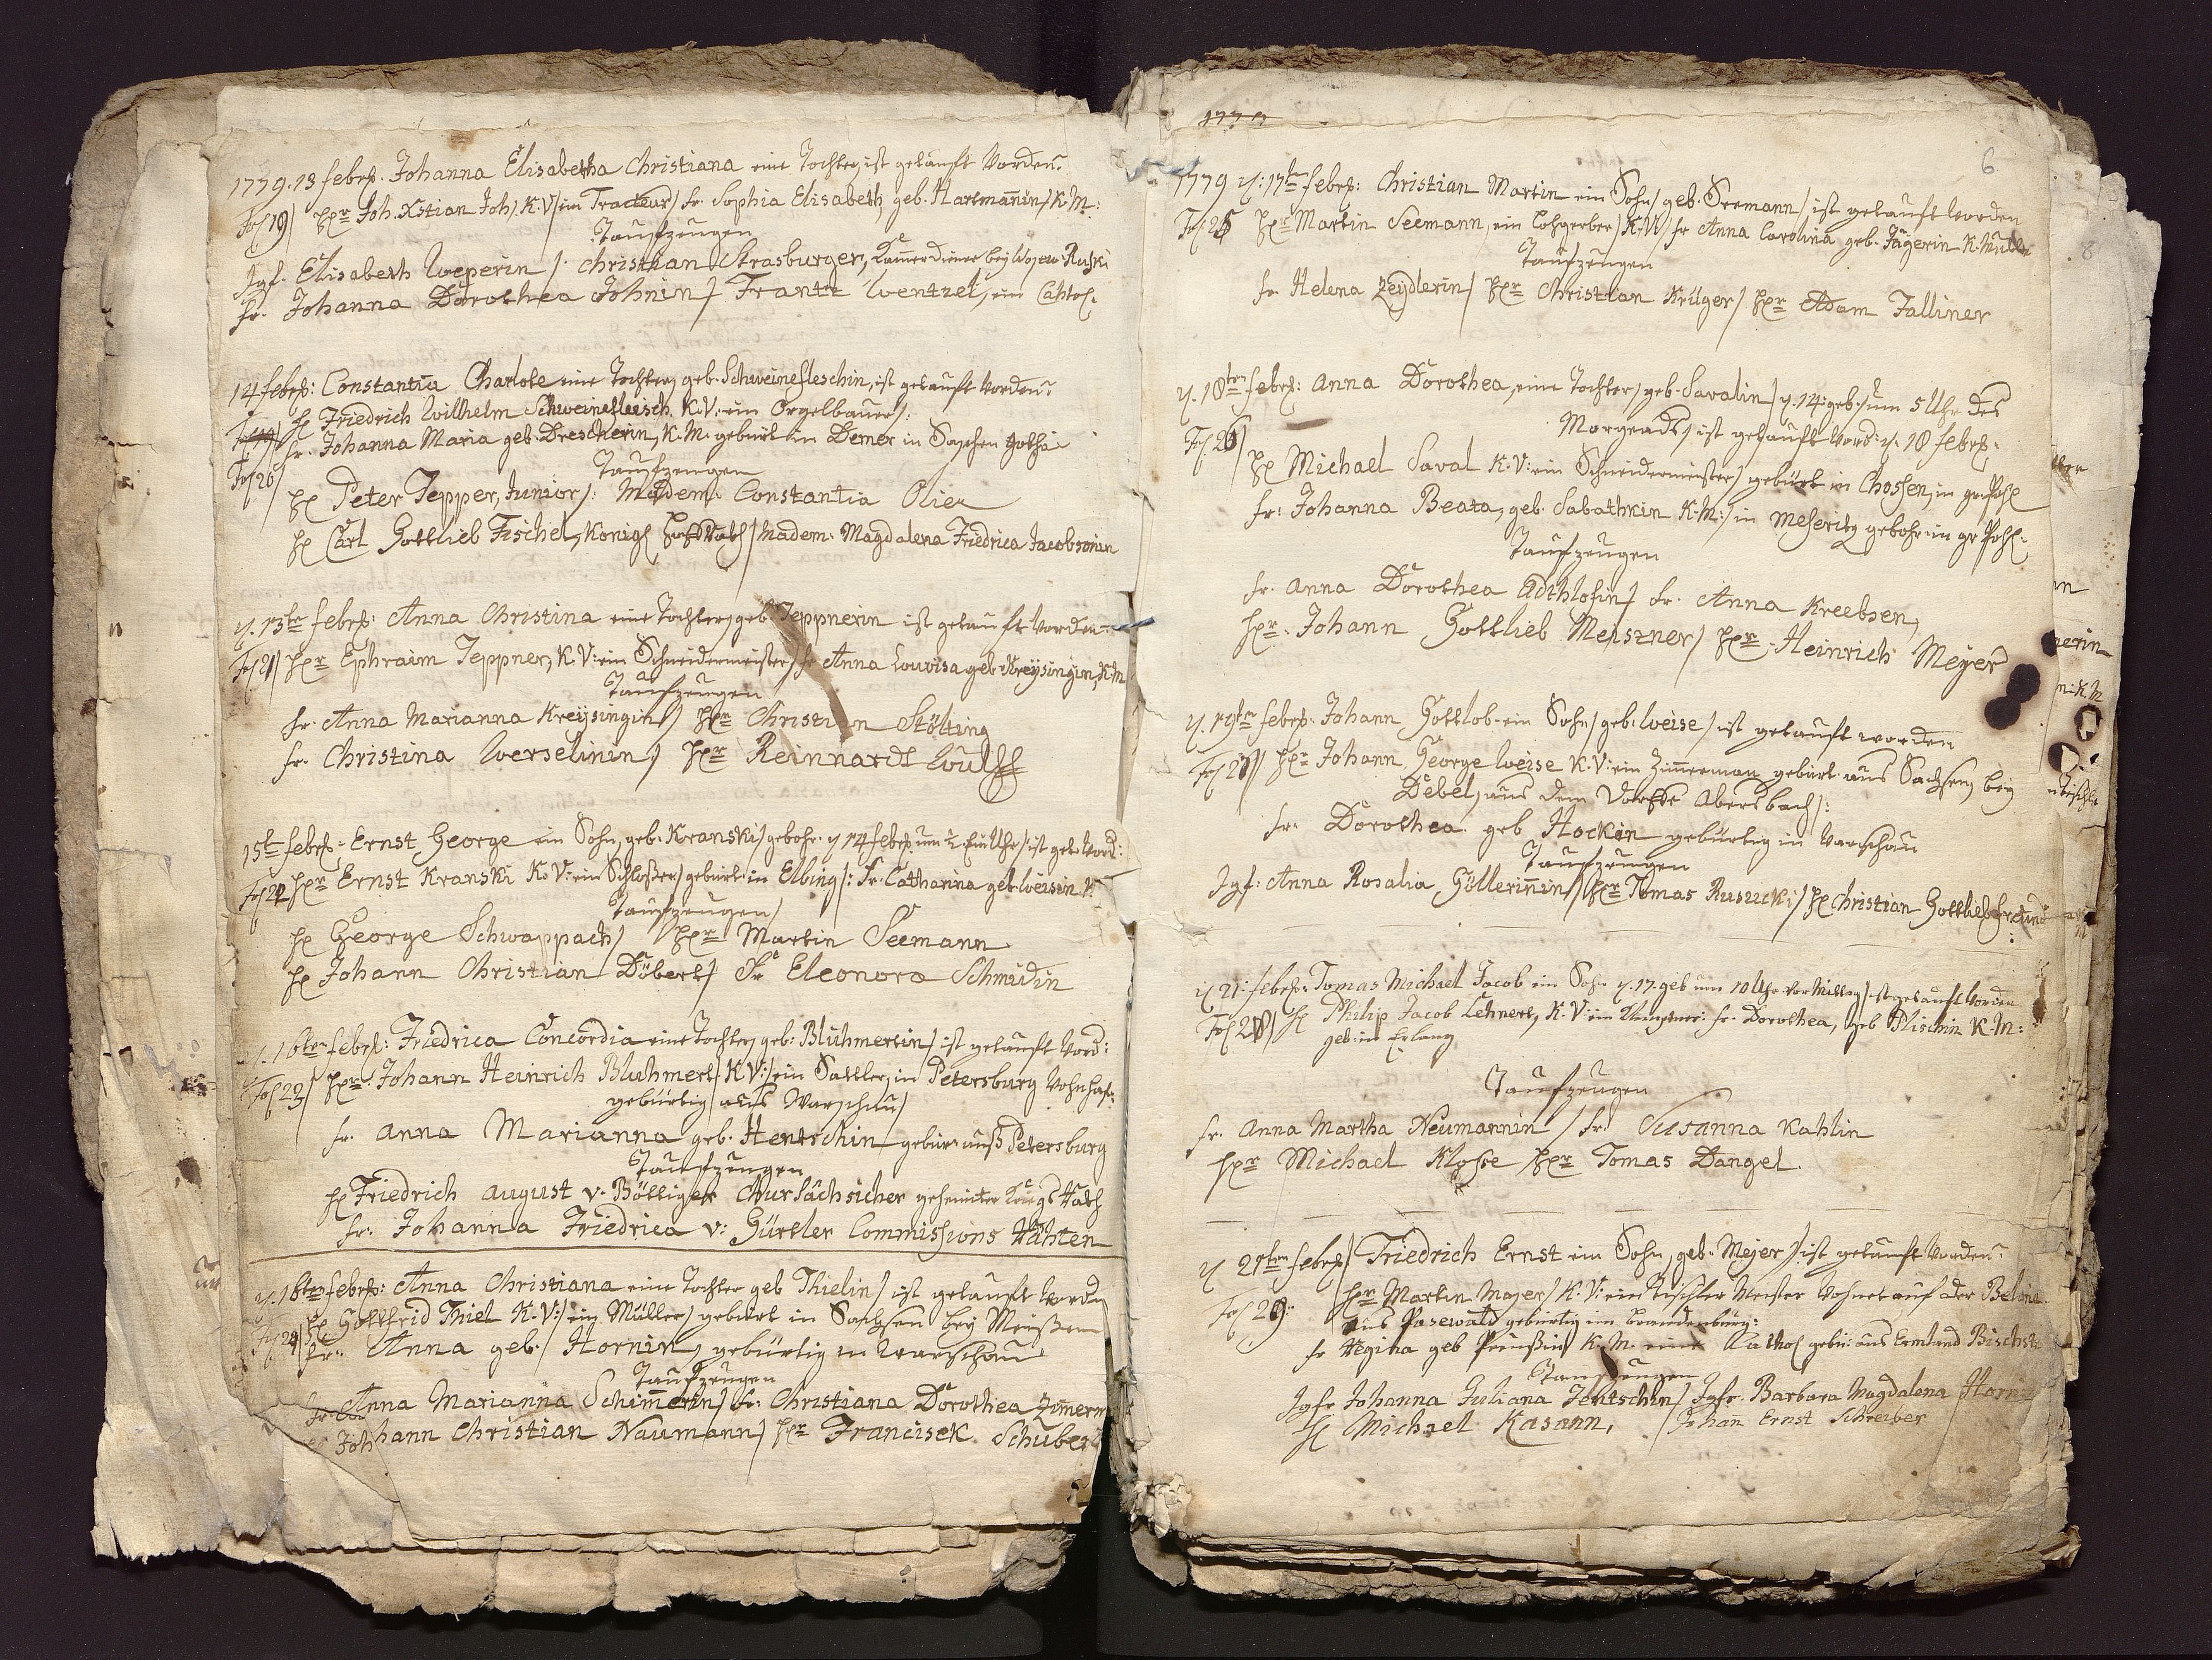 1779. 13 febr: Johanna Elisabetha Christiana eine Tochter, ist getauft Vorden.
Fol 19/ Hr Joh. Xstian Joh/. K.V/ ein Tracteur/ Fr. Sophia Elisabeth, geb. Hartmannin/ K.M:
Taufzeugen
Jgf. Elisabeth Weperin /. Christian Strasburger, Kamerdiener bey Wojew.
Fr. Johanna Dorothea Johnin/ Frantz Wentzel, ein
14 febr: Constantia Charlote eine Tochter, geb. Schweinefleschin, ist getauft Vorden.
H Friedrich Wilhelm Schweinefleisch. K.V: ein Orgelbauer/.
Fr. Johanna Maria geb. Drescherin, K.M. gebürt in Demer in Sachsen Gotha
Fol 20/ Taufzeugen
H Peter Tepper, Junior/: Madem: Constantia
H Carl Gottlieb Fischel, Königl Hoff Rath/ Madem: Magdalena Friedrica Jacobsonin
d. 15te febr: Anna Christina eine Tochter, geb. Teppnerin ist getauft Vorden
Fol 21/ Hr Ephraim Teppner, K.V: ein Schneidermeister/ fr Anna Louvisa geb. Kreysingin, K.M
Taufzeugen
fr. Anna Marianna Kreysingin/ Hr Christian Stölting
fr. Christina Werselinin/ Hr Reinnardt Wulff
15te febr: Ernst George ein Sohn, geb: Kranski/ gebohr. d 14 febr. um ½ Ein Uhr/ ist get. Vord:
Fol 22 Hr Ernst Kranski K.V: ein Schloßer/ gebürt: in Elbing/: Fr. Catharina geb. Weisin K:
Taufzeugen/
H George Schwappach/ Hr Martin Seemann
H Johann Christian Döbert/ Fr Eleonora Schmidin
d. 16ten febr: Friedrica Concordia eine Tochter, geb: Blühmertin/ ist getauft Vord:
Fol 23/ Hr Johann Heinrich Bluhmert/ K.V:/ ein Sattler, in Petersburg Vohnhaf:
gebürtig/ aus Warschau/
fr. Anna Marianna geb. Hentschin gebür: auß Petersburg
Taufzeugen
H Friedrich August v. Böttiger Chursächsicher geheimter Kriegs Rath
fr. Johanna Friedrica v: Gürtler Commissions Rähten
d. 16ten febr: Anna Christiana eine Tochter geb Thielin/ ist getauft Vorden
Fol 24/ H Gottfrid Thiel K.V:/ ein Müller/ gebürt in Sachsen bey Meißen
fr: Anna geb. Hornin, gebürtig in Warschau
Taufzeugen
fr. Anna Marianna Schimmerin/ fr: Christiana Dorothea
Johann Christian Naumann/ Hr Francisek Schuber
6
1779 d. 17te febr: Christian Martin ein Sohn/ geb. Seemann/ ist getauft Vorden
Fol 25 Hr Martin Seemann, ein Lohgerber/ K.V/ fr Anna Carolina geb. Jägerin K. Mutter
Taufzeugen
fr. Helena Zeydlerin/ Hr Christian Krüger/ Hr Adam Falliner
d. 18ten febr: Anna Dorothea, eine Tochter, geb. Savalin/ d. 14: geb:/ um 5 Uhr des
Morgends, ist getauft Vord: d. 18 febr:
Fol 26/ H Michael Saval K.V: ein Schneidermeister/ gebürt in Chossen, in gr. Pohl
fr: Johanna Beata, geb. Sabathkin K.M:/ in Meseritz gebohr: in gr Pohl:
Taufzeugen
fr. Anna Dorothea fr. Anna Kreebsen,
Hr. Johann Gottlieb Meiszner/ Hr. Heinrich Meyer
d. 19ten febr: Johann Gottlob. ein Sohn/ geb: Weise/ ist getauft worden
Fol 27/ Hr Johann George Weise K.V: ein Zimmerman gebürt. aus Sachsen, bey
Debel, aus dem Dorffe Abersbach/:
fr. Dorothea geb Hockin gebürtig in Varschau
Taufzeugen
Jgf: Anna Rosalia Göllerinnin/ Hr Tomas Rusucki/ H Christian Gottlieb
d 21: febr: Tomas Michael Jacob ein Sohn d. 17. geb um 10 Uhr Vormittag/ ist getauft Vorden
Fol 28/ H Philip Jacob Lehnert, K.V: ein fr. Dorothea, geb Plischin K.M:
geb: in Erlang
Taufzeugen
fr. Anna Martha Neumannin/ fr. Susanna Kahlin
Hr Michael Klosse Hr Tomas Dangel.
d 21ten febr/ Friedrich Ernst ein Sohn, geb. Mejer/ ist getauft Vorden.
Fol 29. Hr Martin Majer/ K.V: ein Tischler Meister Vohnet auf der
aus Pasewald gebürtig im Brandenburg:
fr Regina geb Preußin/ K.M. eine Kathol gebü: aus Ermland Bischst
Taufzeugen
Jgfr Johanna Juliana Jentschin/ Jgfr. Barbara Magdalena
H Michael Kasann, Johan Ernst Schreiber